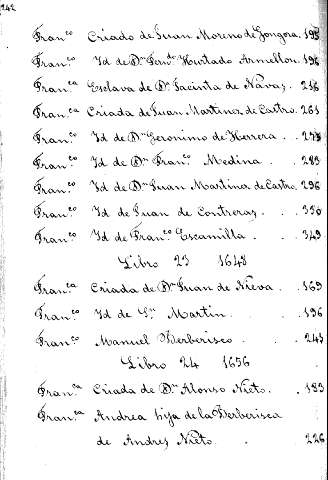 242
Fran.co Criado de Juan Moreno de Gongora. 195
Fran.co Id de D.n Fern.do Hurtado Armellon. 196
Fran.ca Esclava de D.a Jacinta de Navas. 216
Fran.ca Criada de Juan Martinez de Castro. 261
Fran.co Id de D.n Geronimo de Herrera . 275
Fran.co Id de D.n Fran.co Medina . . 285
Fran.co Id de D.n Juan Martinez de Castro. 296
Fran.co Id de Juan de Contreras. . . 330
Fran.co Id de Fran.co Escamilla . . . 349
Libro 23 1648
Fran.ca Criada de D.n Juan de Nieva . . 169
Fran.co Id de S.n Martin . . . 196
Fran.co Manuel Berberisco . . . 245
Libro 24 1656
Fran.ca Criada de D.n Alonso Nieto . . 183
Fran.ca Andrea hija de la Berberisca
de Andres Nieto . . 226